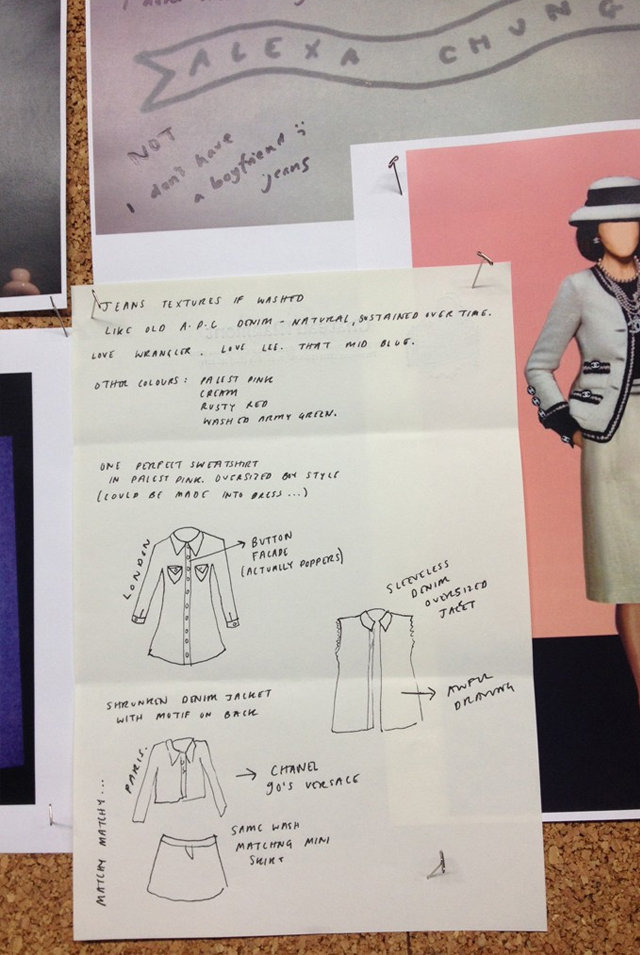 ALEXA CHUNG
NOT
I don't have
a boyfriend
jeans
JEANS TEXTURES IF WASHED
LIKE OLD A.P.C DENIM - NATURAL, SUSTAINED OVER TIME.
LOVE WRANGLER. LOVE LEE. THAT MID BLUE.
OTHER COLOURS: PALEST PINK
CREAM
RUSTY RED
WASHED ARMY GREEN.
ONE PERFECT SWEATSHIRT
IN PALEST PINK. OVERSIZED BOY STYLE
(COULD BE MADE INTO DRESS...)
LONDON
BUTTON
FACADE
(ACTUALLY POPPERS)
SLEEVELESS
DENIM
OVERSIZED
JACKET
AWFUL
DRAWING
SHRUNKEN DENIM JACKET
WITH MOTIF ON BACK
PARIS.
CHANEL
90'S VERSACE
MATCHY MATCHY...
SAME WASH
MATCHNG MINI
SKIRT